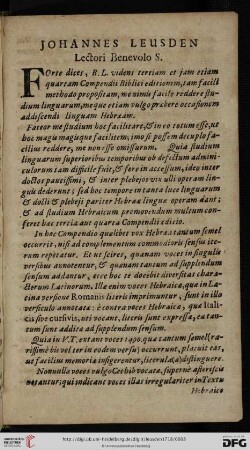 JOHANNES LEUSDEN
Lectori Benevolo S.
FOrte dices, B. L. videns tertiam et jam etiam
quartam Compendii Biblici editionem, tam facili
methodo propositam, me nimis facile reddere stu-
dium linguarum, meque etiam vulgo præbere occasionem
addiscendi linguam Hebræam.
Fateor me studium hoc facilitare, & in eo totum esse, ut
hoc magis magisque facilitem; imo si possem decuplo fa-
cilius reddere, me non esse omissurum. Quia studium
linguarum superioribus temporibus ob defectum admini-
culorum tam difficile fuit, & fere in accessum, ideo inter
doctos paucissimi, & inter plebejos vix ulli operam lin-
guis dederunt; sed hoc tempore in tanta luce linguarum
& docti & plebeji pariter Hebrææ linguæ operam dant;
& ad studium Hebraicum promovendum multum con-
feret hæc tertia aut quarta Compendii editio.
In hoc Compendio quælibet vox Hebræa tantum semel
occurrit, nisi ad complementum commodioris sensus ite-
rum repetatur. Et ut scires, quænam voces in singulis
versibus annotentur, & quænam tantum ad supplendum
sensum addantur, ecce hoc te docebit diversitas chara-
cterum Latinorum. Illæ enim voces Hebraicæ, quæ in La-
tina versione Romanis literis imprimuntur, sunt in illo
versiculo annotatæ: è contra voces Hebraicæ, quæ Itali-
cis sive cursivis, uti vocant, literis sunt expressæ, eæ tan-
tum sunt addita ad supplendum sensum.
Quia in V.T. extant voces 1400. quæ tantum semel (ra-
rissimè bis vel ter in eodem versu) occurrunt, placuit eas,
ut facilius memoriæ insigerentur, litterulâ (a) distinguere.
Nonnullæ voces vulgo Cethib vocatæ, supernè asteriscis
notantur; qui indicant voces illas irregulariter in Textu
Hebraico
http://digi.ub.uni-heidelberg.de/diglit/leusden1718/0003
© Universitätsbibliothek Heidelberg
UNIVERSITÄTS-
BIBLIOTHEK
HEIDELBERG
gefördert durch die
DFG